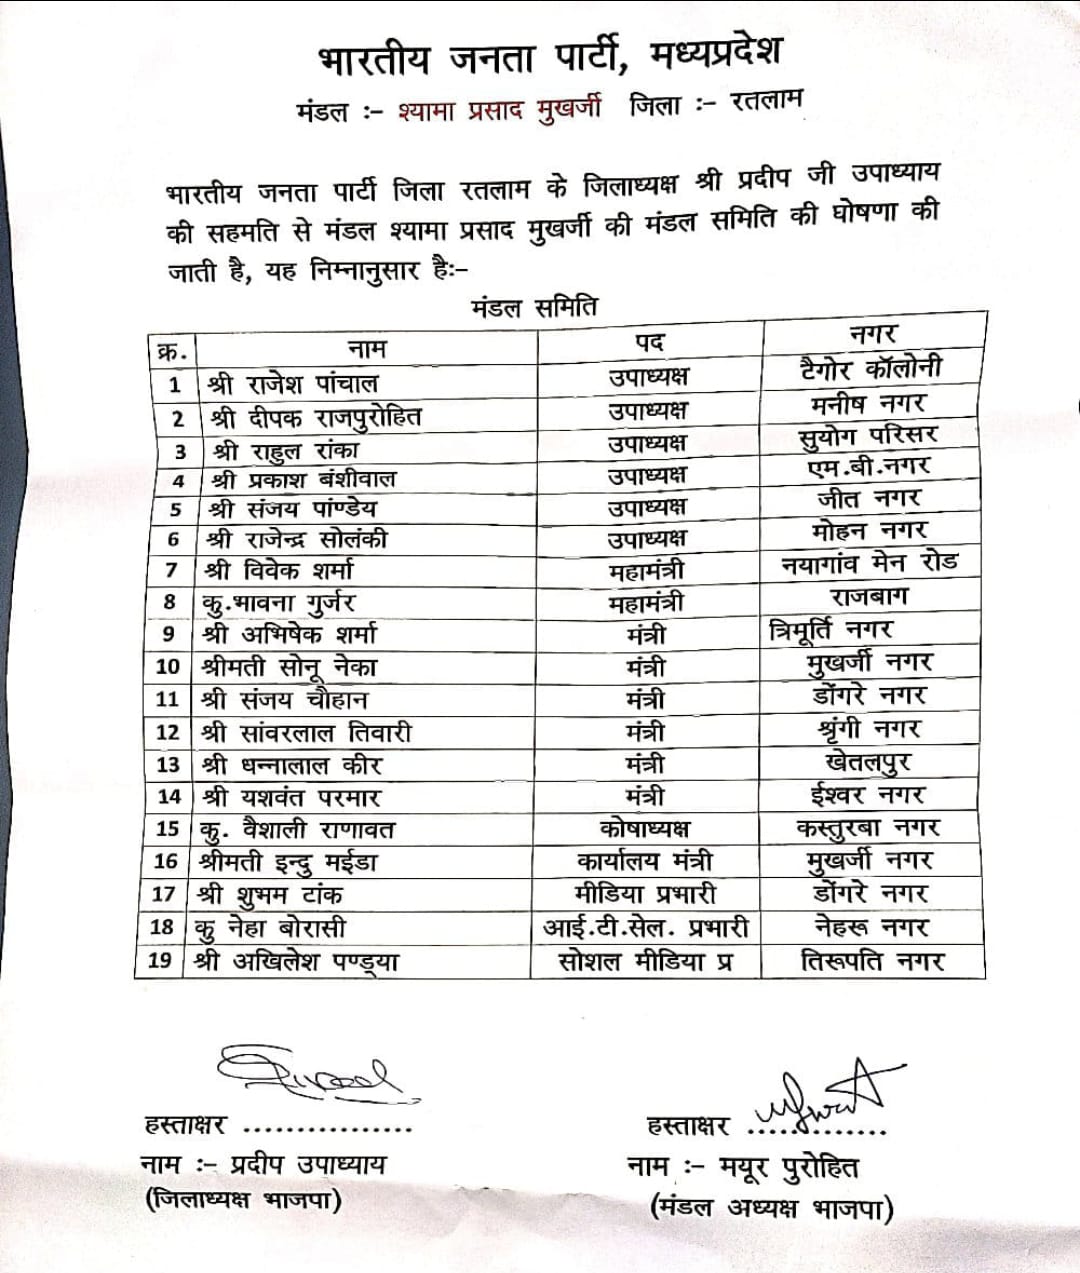 भारतीय जनता पार्टी, मध्यप्रदेश
मंडल :- श्यामा प्रसाद मुखर्जी जिला :- रतलाम
भारतीय जनता पार्टी जिला रतलाम के जिलाध्यक्ष श्री प्रदीप जी उपाध्याय
की सहमति से मंडल श्यामा प्रसाद मुखर्जी की मंडल समिति की घोषणा की
जाती है, यह निम्नानुसार है:-
मंडल समिति
क्र. नाम पद नगर
1 श्री राजेश पांचाल उपाध्यक्ष टैगोर कॉलोनी
2 श्री दीपक राजपुरोहित उपाध्यक्ष मनीष नगर
3 श्री राहुल रांका उपाध्यक्ष सुयोग परिसर
4 श्री प्रकाश बंशीवाल उपाध्यक्ष एम.बी.नगर
5 श्री संजय पांण्डेय उपाध्यक्ष जीत नगर
6 श्री राजेन्द्र सोलंकी उपाध्यक्ष मोहन नगर
7 श्री विवेक शर्मा महामंत्री नयागांव मेन रोड
8 कु.भावना गुर्जर महामंत्री राजबाग
9 श्री अभिषेक शर्मा मंत्री त्रिमूर्ति नगर
10 श्रीमती सोनू नेका मंत्री मुखर्जी नगर
11 श्री संजय चौहान मंत्री डोंगरे नगर
12 श्री सांवरलाल तिवारी मंत्री श्रृंगी नगर
13 श्री धन्नालाल कीर मंत्री खेतलपुर
14 श्री यशवंत परमार मंत्री ईश्वर नगर
15 कु. वैशाली राणावत कोषाध्यक्ष कस्तुरबा नगर
16 श्रीमती इन्दु मईडा कार्यालय मंत्री मुखर्जी नगर
17 श्री शुभम टांक मीडिया प्रभारी डोंगरे नगर
18 कु नेहा बोरासी आई.टी.सेल. प्रभारी नेहरू नगर
19 श्री अखिलेश पण्ड्या सोशल मीडिया प्र तिरूपति नगर
हस्ताक्षर ................ हस्ताक्षर ..............
नाम :- प्रदीप उपाध्याय नाम :- मयूर पुरोहित
(जिलाध्यक्ष भाजपा) (मंडल अध्यक्ष भाजपा)